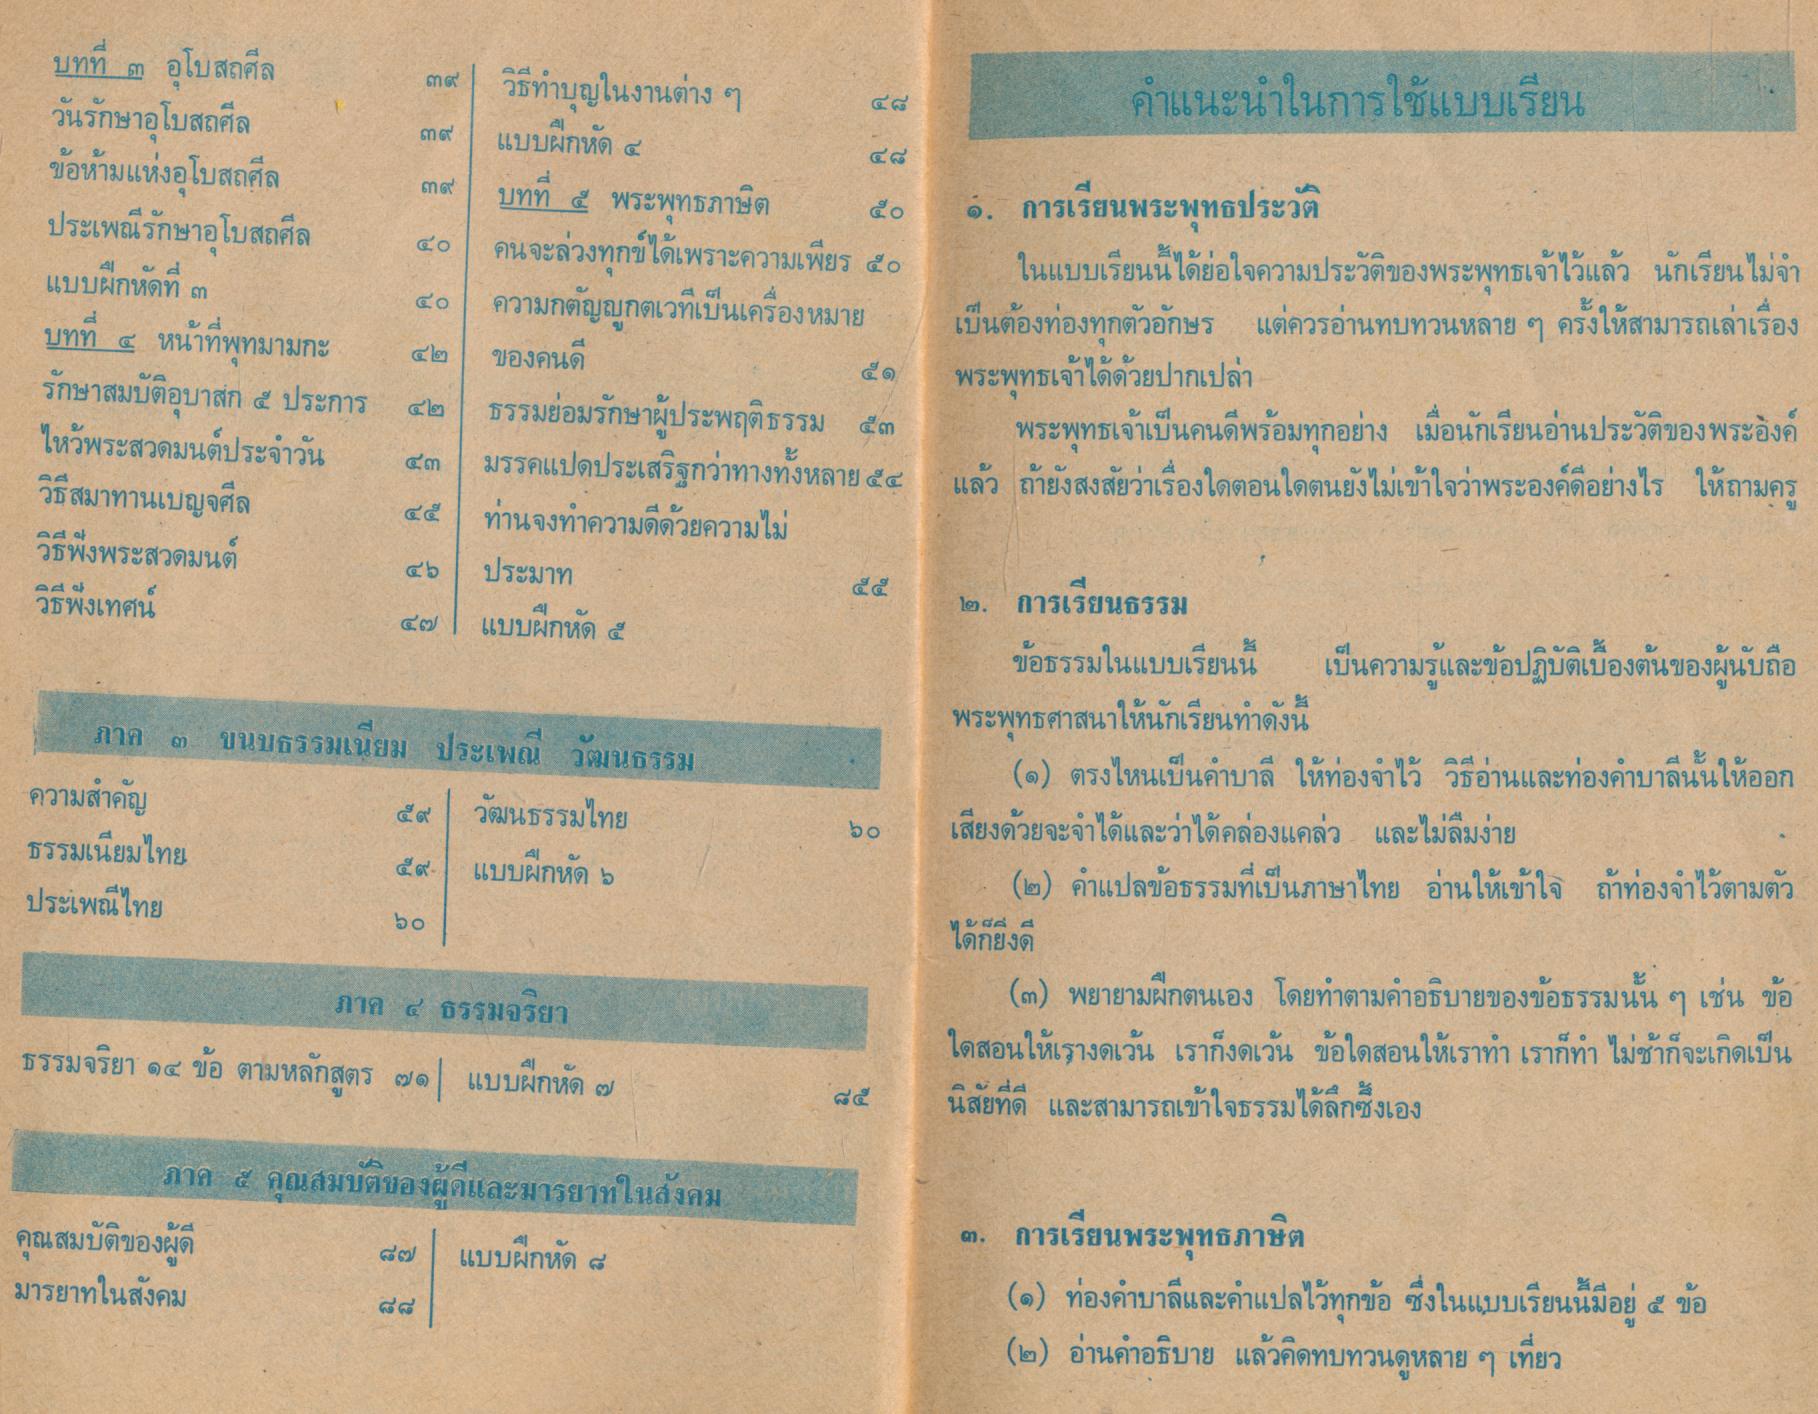 บทที่ ๓ อุโบสถศีล ๓๙
วันรักษาอุโบสถศีล ๓๙
ข้อห้ามแห่งอุโบสถศีล ๓๙
ประเพณีรักษาอุโบสถศีล ๔๐
แบบฝึกหัดที่ ๓ ๔๐
บทที่ ๔ หน้าที่พุทมามกะ ๔๒
รักษาสมบัติอุบาสก ๕ ประการ ๔๒
ไหว้พระสวดมนต์ประจำวัน ๔๓
วิธีสมาทานเบญจศีล ๔๕
วิธีฟังพระสวดมนต์ ๔๖
วิธีฟังเทศน์ ๔๗
วิธีทำบุญในงานต่าง ๆ ๔๘
แบบฝึกหัด ๔ ๔๘
บทที่ ๕ พระพุทธภาษิต ๕๐
คนจะล่วงทุกข์ได้เพราะความเพียร ๕๐
ความกตัญญูกตเวทีเป็นเครื่องหมาย
ของคนดี ๕๑
ธรรมย่อมรักษาผู้ประพฤติธรรม ๕๓
มรรคแปดประเสริฐกว่าทางทั้งหลาย ๕๔
ท่านจงทำความดีด้วยความไม่
ประมาท ๕๕
แบบฝึกหัด ๕
ภาค ๓ ขนบธรรมเนียม ประเพณี วัฒนธรรม
ความสำคัญ ๕๙
ธรรมเนียมไทย ๕๙
ประเพณีไทย ๖๐
วัฒนธรรมไทย ๖๐
แบบฝึกหัด ๖
ภาค ๔ ธรรมจริยา
ธรรมจริยา ๑๔ ข้อ ตามหลักสูตร ๗๑
แบบฝึกหัด ๗ ๘๕
ภาค ๕ คุณสมบัติของผู้ดีและมารยาทในสังคม
คุณสมบัติของผู้ดี ๘๗
มารยาทในสังคม ๘๘
แบบฝึกหัด ๘
คำแนะนำในการใช้แบบเรียน
๑. การเรียนพระพุทธประวัติ
ในแบบเรียนนี้ได้ย่อใจความประวัติของพระพุทธเจ้าไว้แล้ว นักเรียนไม่จำ
เป็นต้องท่องทุกตัวอักษร แต่ควรอ่านทบทวนหลาย ๆ ครั้งให้สามารถเล่าเรื่อง
พระพุทธเจ้าได้ด้วยปากเปล่า
พระพุทธเจ้าเป็นคนดีพร้อมทุกอย่าง เมื่อนักเรียนอ่านประวัติของพระองค์
แล้ว ถ้ายังสงสัยว่าเรื่องใดตอนใดตนยังไม่เข้าใจว่าพระองค์ดีอย่างไร ให้ถามครู
๒. การเรียนธรรม
ข้อธรรมในแบบเรียนนี้ เป็นความรู้และข้อปฏิบัติเบื้องต้นของผู้นับถือ
พระพุทธศาสนาให้นักเรียนทำดังนี้
(๑) ตรงไหนเป็นคำบาลี ให้ท่องจำไว้ วิธีอ่านและท่องคำบาลีนั้นให้ออก
เสียงด้วยจะจำได้และว่าได้คล่องแคล่ว และไม่ลืมง่าย
(๒) คำแปลข้อธรรมที่เป็นภาษาไทย อ่านให้เข้าใจ ถ้าท่องจำไว้ตามตัว
ได้ก็ยิ่งดี
(๓) พยายามฝึกตนเอง โดยทำตามคำอธิบายของข้อธรรมนั้น ๆ เช่น ข้อ
ใดสอนให้เรางดเว้น เราก็งดเว้น ข้อใดสอนให้เราทำ เราก็ทำ ไม่ช้าก็จะเกิดเป็น
นิสัยที่ดี และสามารถเข้าใจธรรมได้ลึกซึ้งเอง
๓. การเรียนพระพุทธภาษิต
(๑) ท่องคำบาลีและคำแปลไว้ทุกข้อ ซึ่งในแบบเรียนนี้มีอยู่ ๕ ข้อ
(๒) อ่านคำอธิบาย แล้วคิดทบทวนดูหลาย ๆ เที่ยว